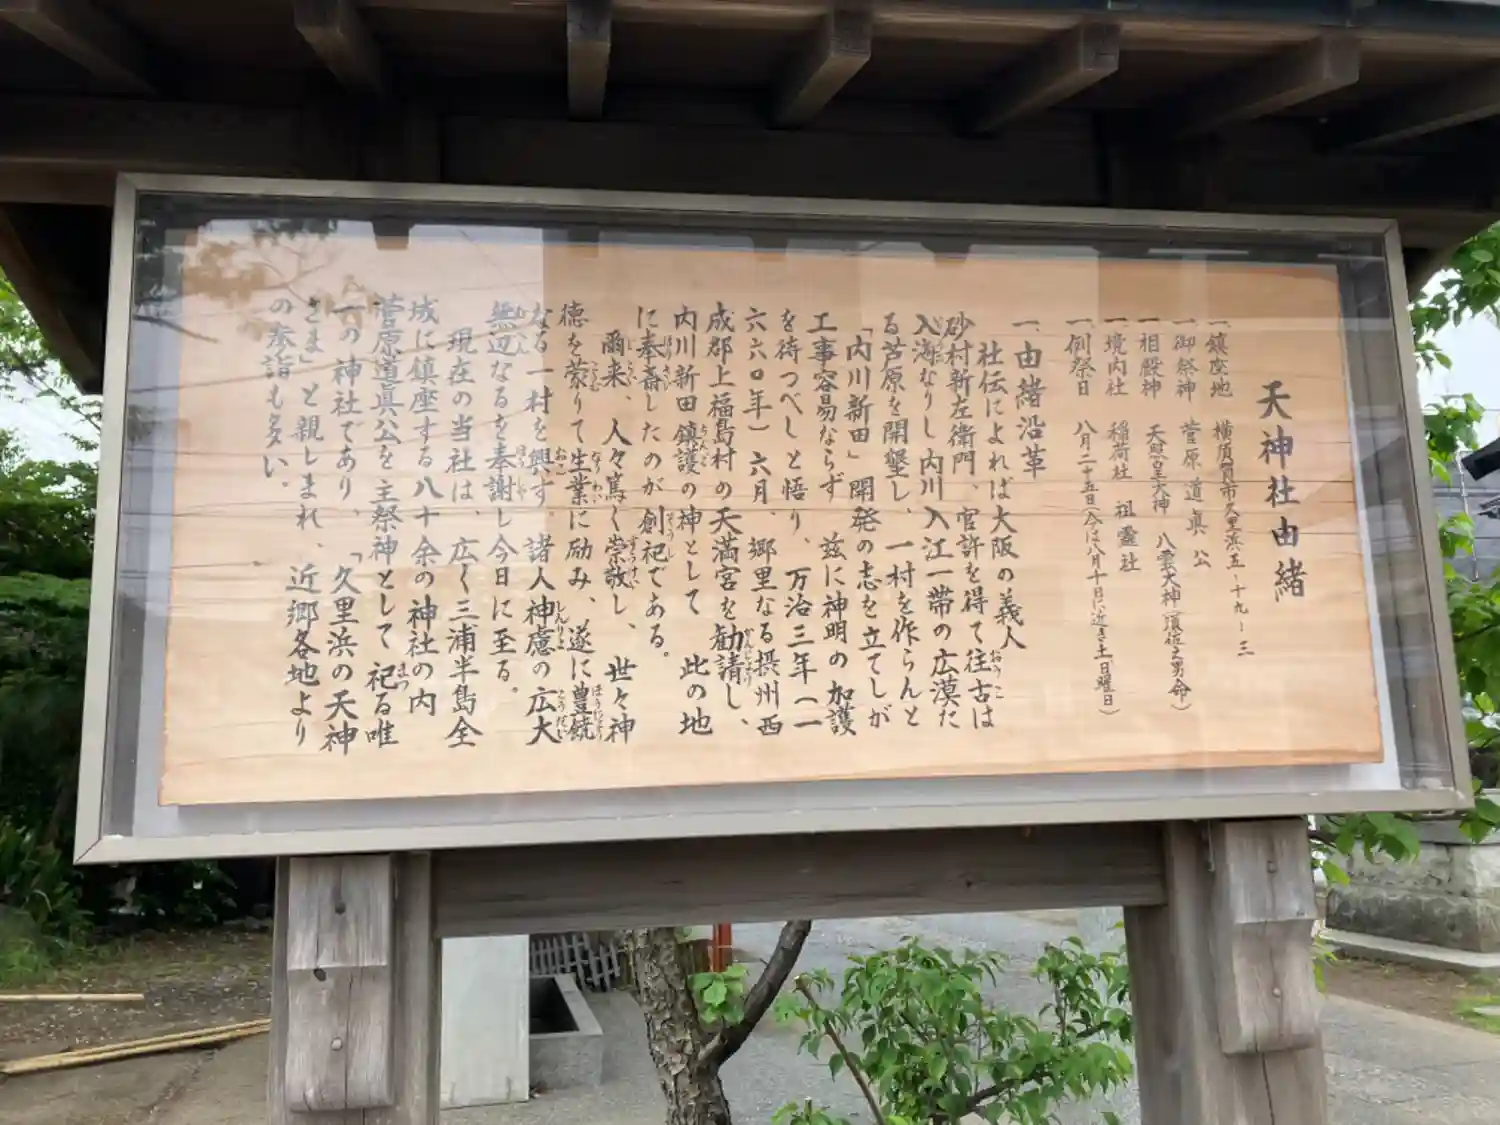 天神社由緒
一 鎮座地 横須賀市久里浜五-十九-三
一 御祭神 菅原道眞公
一 相殿神 天照皇大神 八雲大神(須佐之男命)
一 境内社 稲荷社 祖霊社
一 例祭日 八月二十五日(今は八月十日に近き土日曜日)
一 由緒沿革
社伝によれば大阪の義人
砂村新左衛門、官許を得て往古は
入海なりし内川入江一帯の広漠た
る芦原を開墾し、一村を作らんと
「内川新田」開発の志を立てしが
工事容易ならず 茲に神明の加護
を待つべしと悟り、万治三年(一
六六〇年)六月、郷里なる摂州西
成郡上福島村の天満宮を勧請し、
内川新田鎮護の神として 此の地
に奉斎したのが創祀である。
爾来、人々篤く崇敬し、世々神
徳を蒙りて生業に励み、遂に豊饒
なる一村を興す。諸人神慮の広大
無辺なるを奉謝し今日に至る。
現在の当社は、広く三浦半島全
域に鎮座する八十余の神社の内
菅原道眞公を主祭神として祀る唯
一の神社であり、「久里浜の天神
さま」と親しまれ、近郷各地より
の参詣も多い。